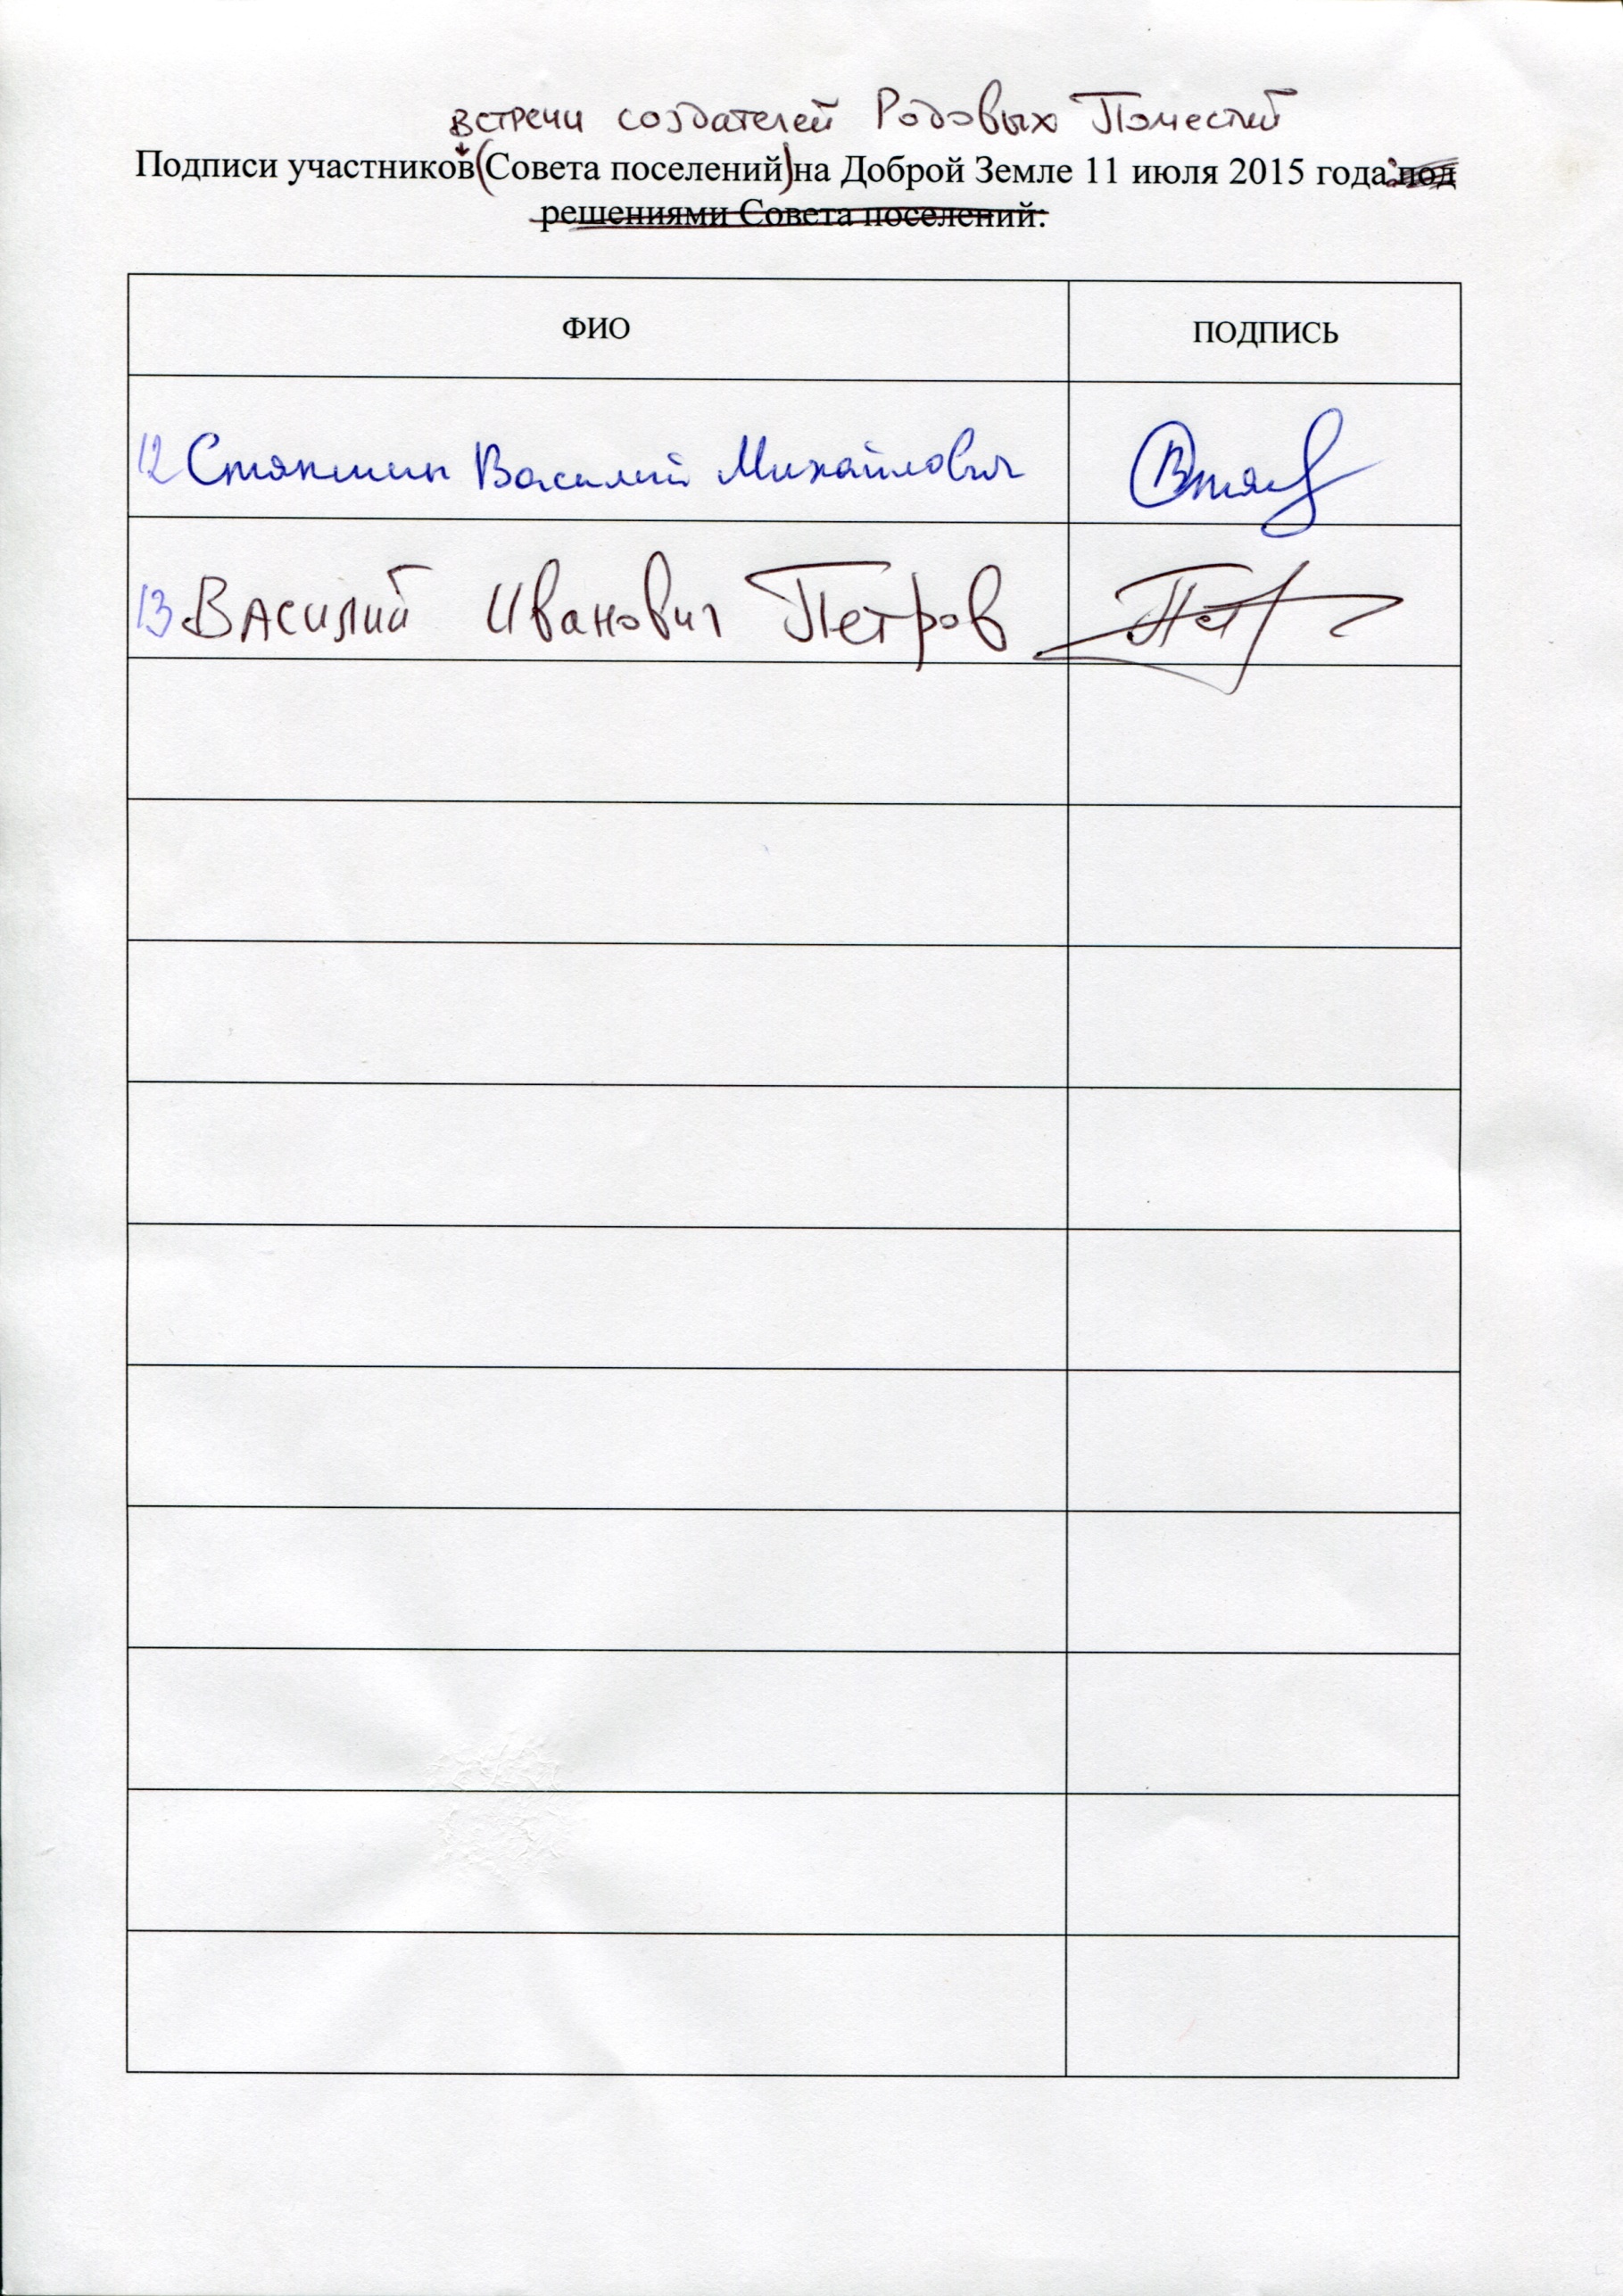 встречи создателей Родовых Поместий
Подписи участников (Совета поселений) на Доброй Земле 11 июля 2015 года: под
решениями Совета поселений:
ФИО ПОДПИСЬ
12 Стякшин Василий Михайлович
13 Василий Иванович Петров Пет